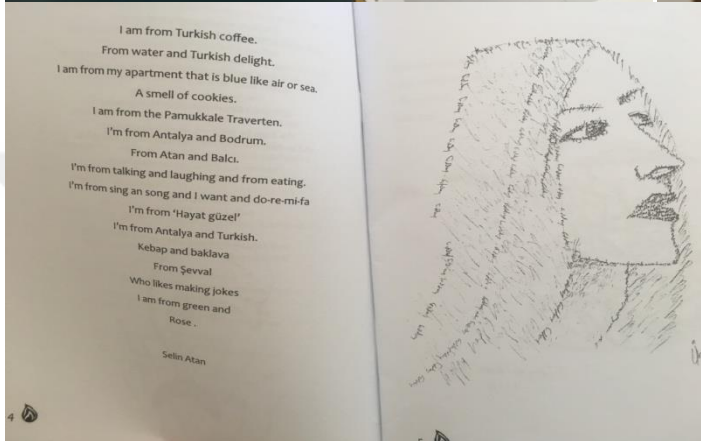 I am from Turkish coffee.
From water and Turkish delight.
I am from my apartment that is blue like air or sea.
A smell of cookies.
I am from the Pamukkale Traverten.
I'm from Antalya and Bodrum.
From Atan and Balcı.
I'm from talking and laughing and from eating.
I'm from sing an song and I want and do-re-mi-fa
I'm from 'Hayat güzel'
I'm from Antalya and Turkish.
Kebap and baklava
From Şevval
Who likes making jokes
I am from green and
Rose .
Selin Atan
4